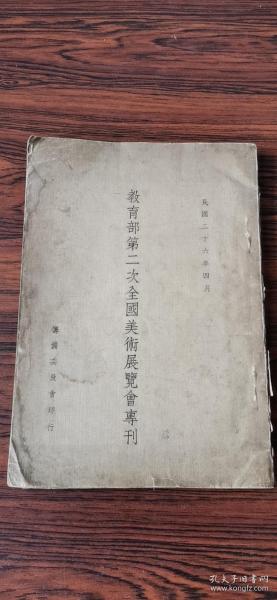 民國二十六年四月
教育部第二次全國美術展覽會專刊
籌備委員會印行
孔夫子旧书网
www.kongfz.com